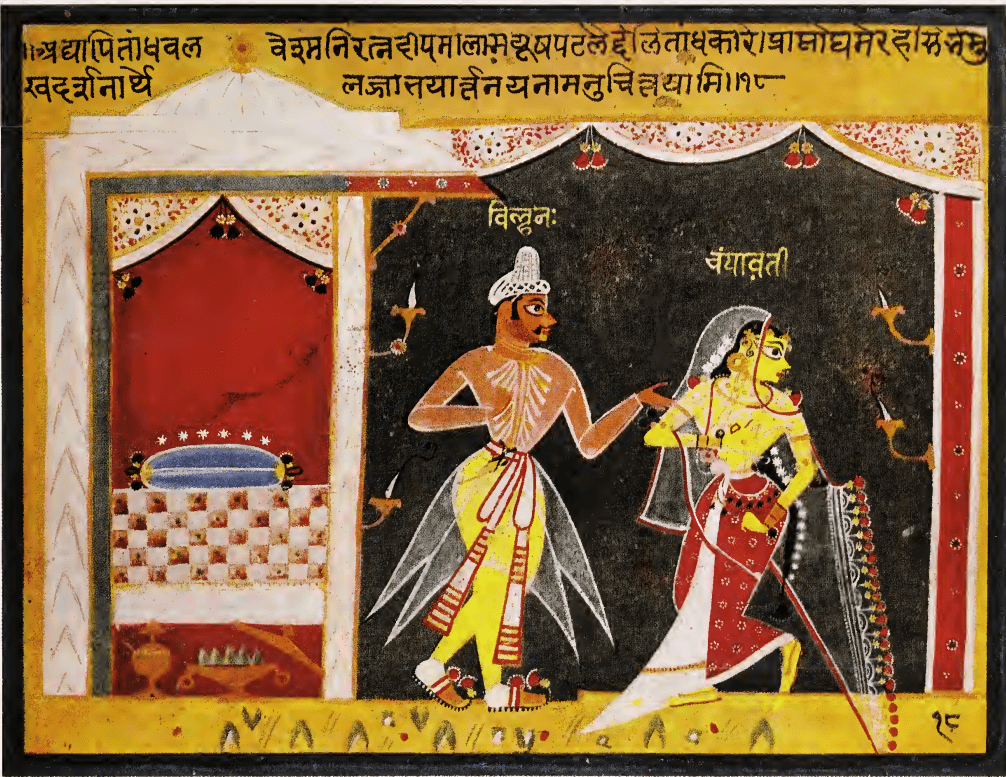 ॥अद्यापितांधवल वेश्मनिरत्नदीपमालामयूषपटलैर्द्दलितांधकारे।प्राप्तोद्यमेरहसिसंमु
खदर्शनार्थं लज्जाभयार्त्तनयनामनुचिन्तयामि॥१८
विल्हनः
चंपावती
१८